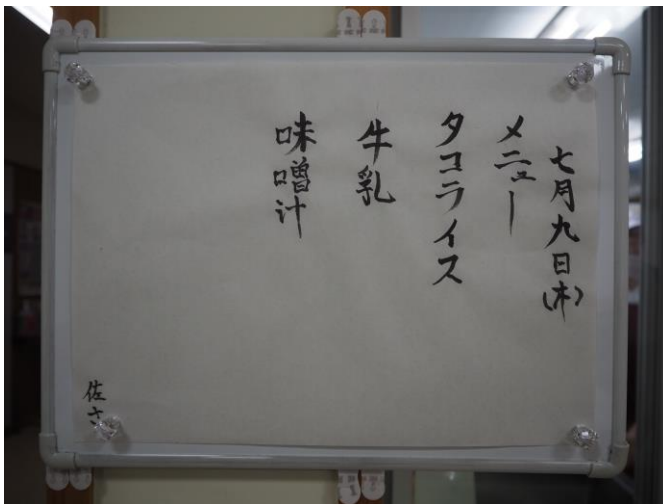 七月九日(木)
メニュー
タコライス
牛乳
味噌汁
佐